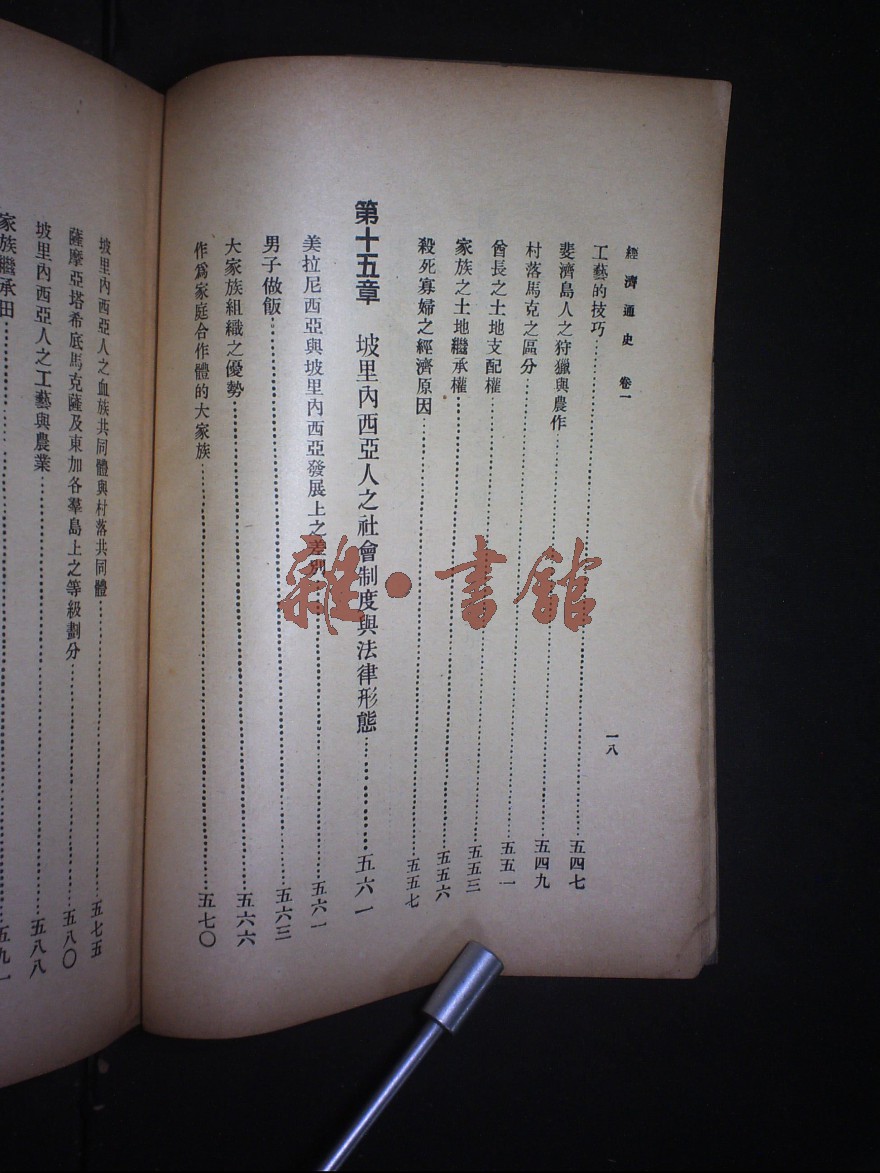 經濟通史 卷一
一八
工藝的技巧……五四七
斐濟島人之狩獵與農作……五四九
村落馬克之區分……五五一
酋長之土地支配權……五五三
家族之土地繼承權……五五六
殺死寡婦之經濟原因……五五七
第十五章 坡里內西亞人之社會制度與法律形態……五六一
美拉尼西亞與坡里內西亞發展上之差別……五六一
男子做飯……五六三
大家族組織之優勢……五六六
作爲家庭合作體的大家族……五七〇
坡里內西亞人之血族共同體與村落共同體……五七五
薩摩亞塔希底馬克薩及東加各羣島上之等級劃分……五八〇
坡里內西亞人之工藝與農業……五八八
家族繼承田……五九一
雜·書館